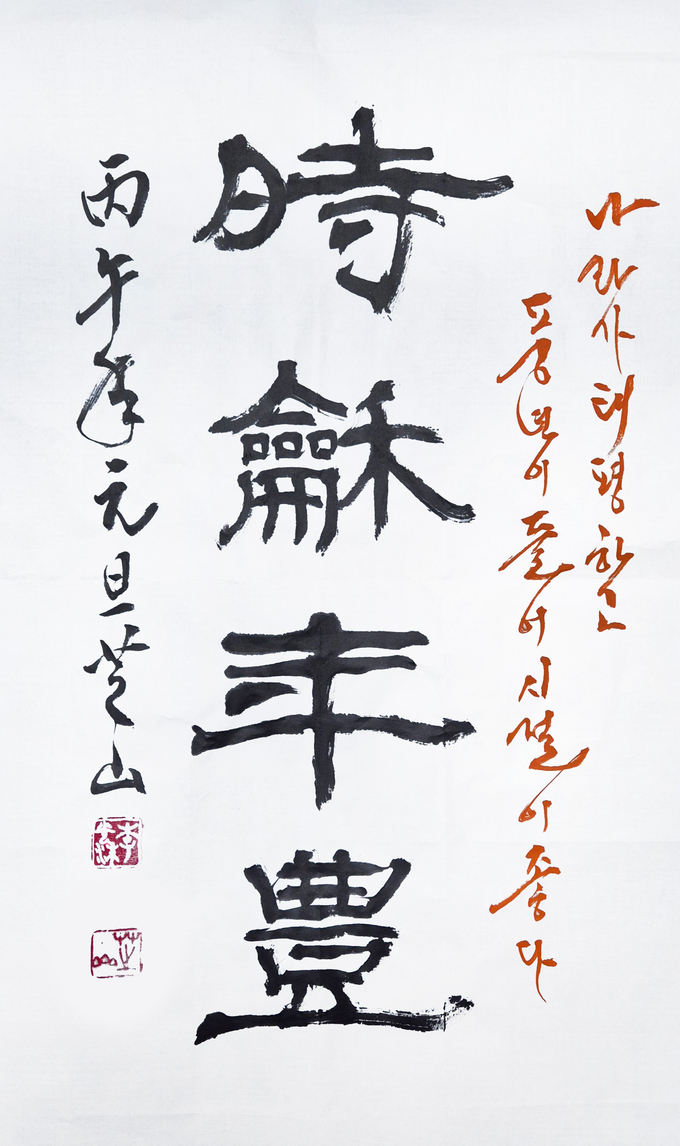 나라가 태평하고
풍년이 들어 시절이 좋다
時龢年豊
丙午年元旦芝山
芝山